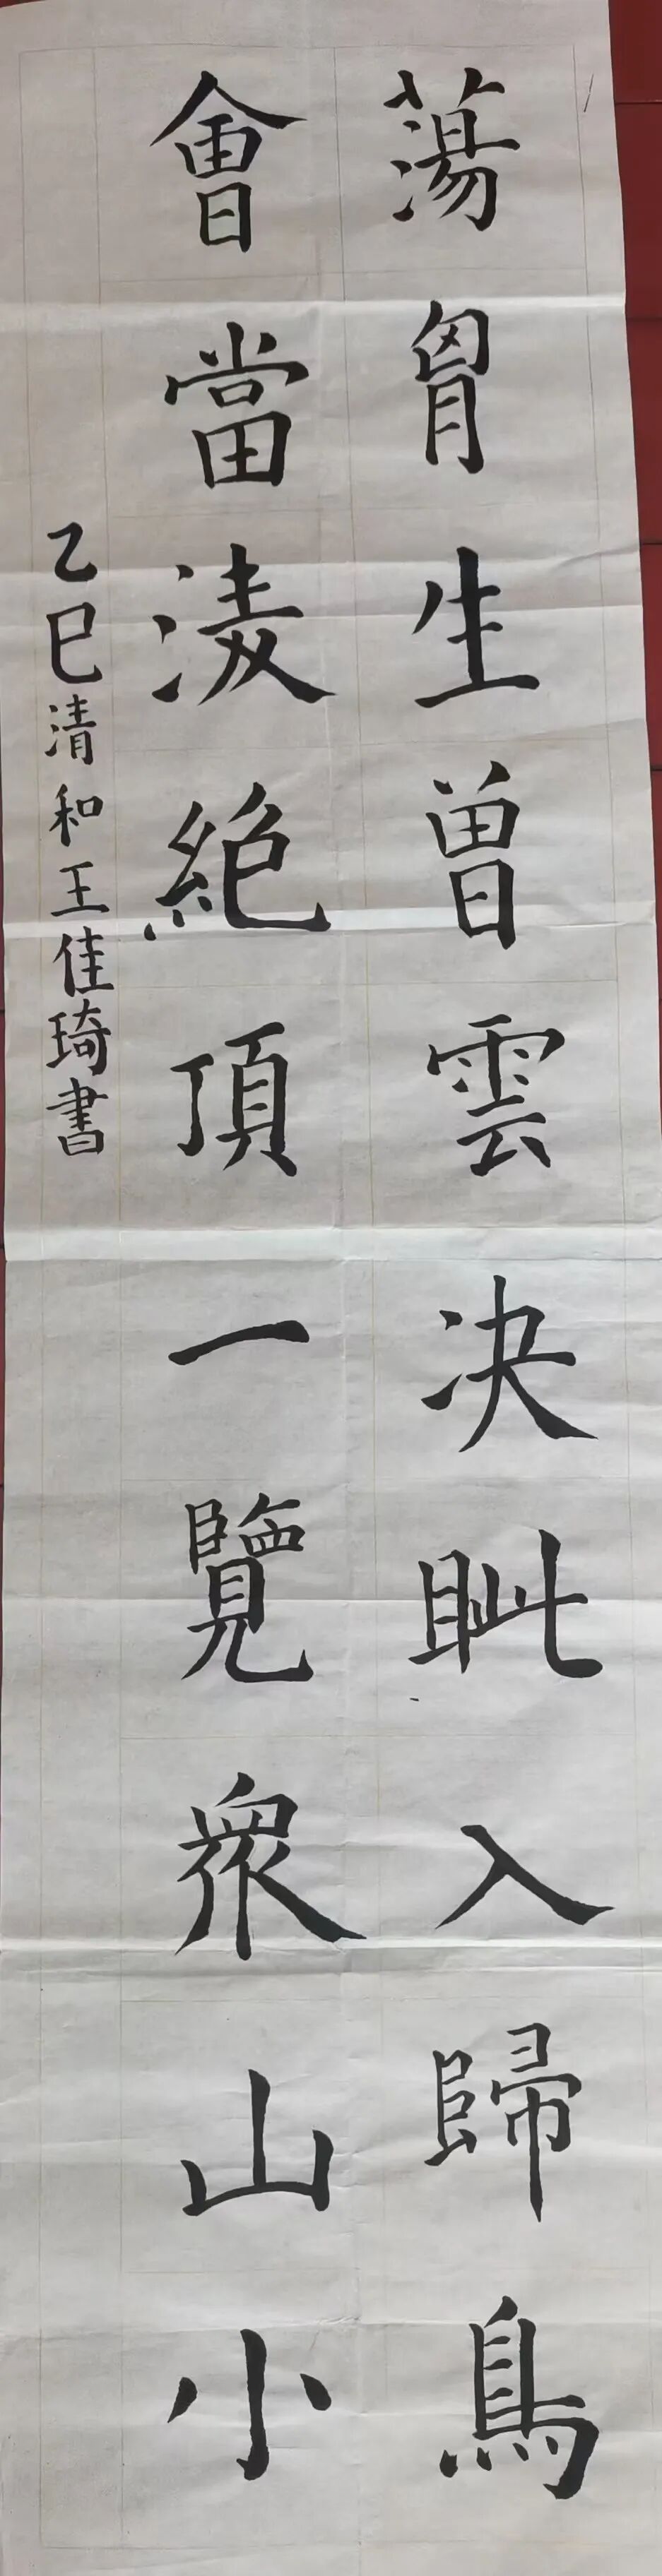 蕩胷生曽雲决眦入歸鳥
會當淩絕頂一覽衆山小
乙巳清和王佳琦書